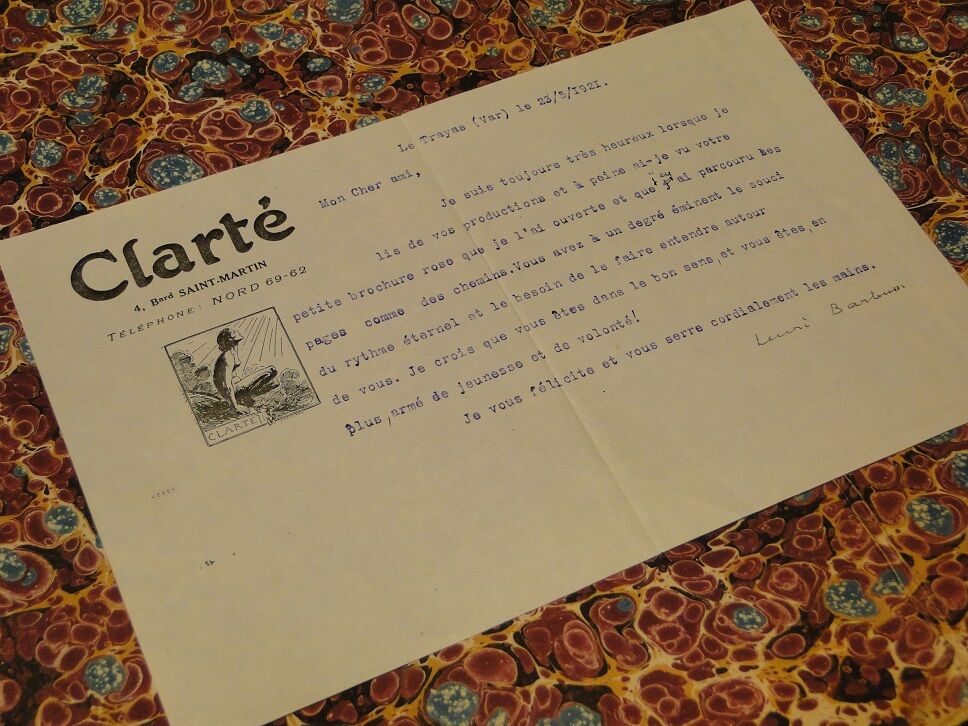 Clarté
4, Bard SAINT-MARTIN
TÉLÉPHONE: NORD 69-62
CLARTÉ
Le Trayas (Var) le 23/5/1921.
Mon Cher ami,
Je suis toujours très heureux lorsque je
lis de vos productions et à peine ai-je vu votre
petite brochure rose que je l'ai ouverte et que j'ai parcouru les
pages comme des chemins.Vous avez à un degré éminent le souci
du rythme éternel et le besoin de le faire entendre autour
de vous. Je crois que vous êtes dans le bon sens,et vous êtes,en
plus,armé de jeunesse et de volonté!
Je vous félicite et vous serre cordialement les mains.
Henri Barbusse